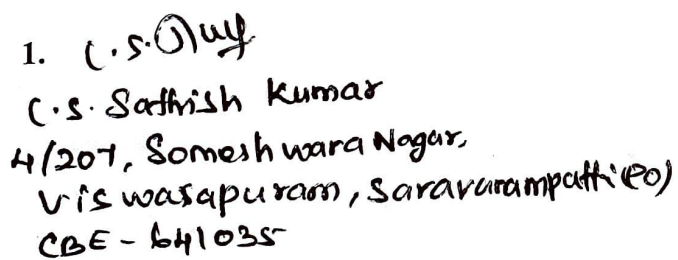 1. C.S.
C.S. Sathish Kumar
4/207, Someshwara Nagar,
Viswasapuram, Saravanampatti (PO)
CBE - 641035